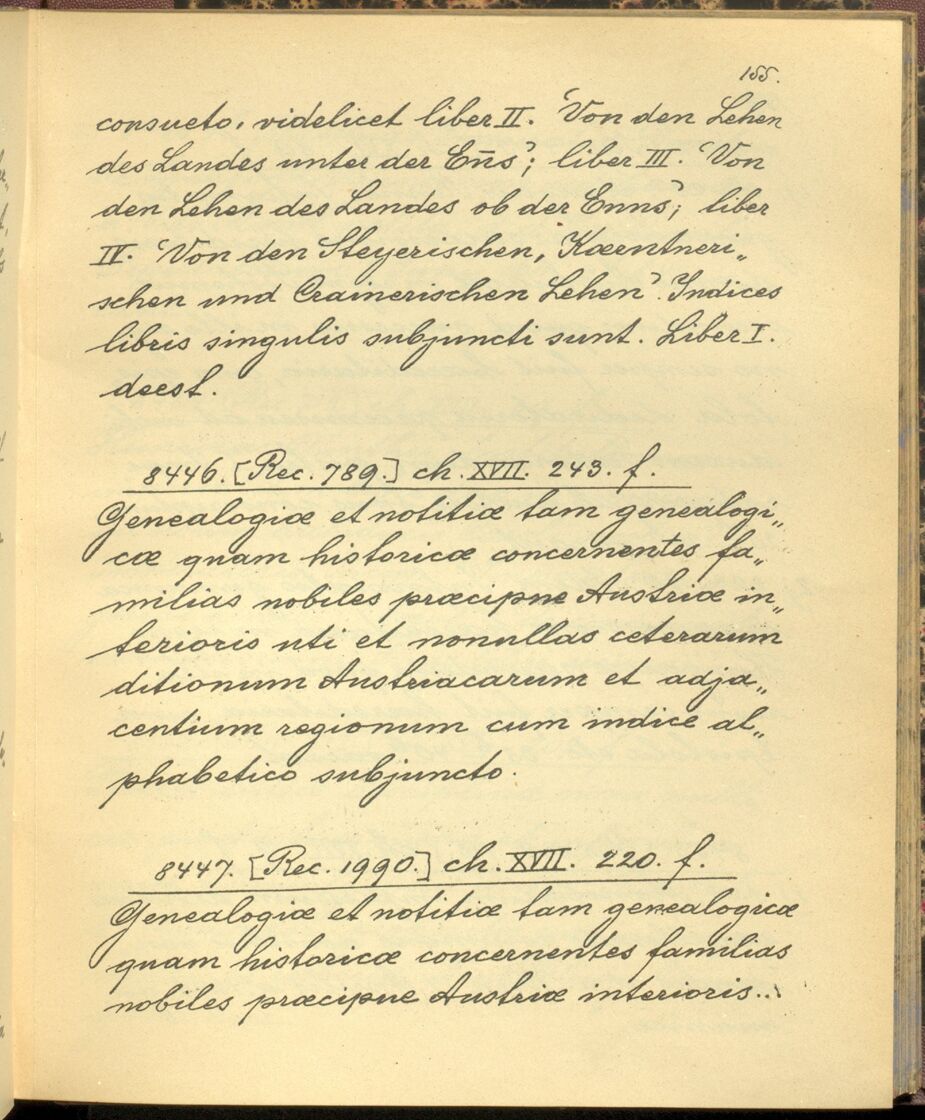 155.
consueto, videlicet liber II. 'Von den Lehen
des Landes unter der Eñs'; liber III. 'Von
den Lehen des Landes ob der Enns'; liber
IV. 'Von den Steyerischen, Kærntneri„
schen und Crainerischen Lehen'. Indices
libris singulis subjuncti sunt. Liber I.
deest.
8446. [Rec. 789.] ch. XVII. 243. f.
Genealogiæ et notitiæ tam genealogi„
cæ quam historicæ concernentes fa„
milias nobiles præcipue Austriæ in„
terioris uti et nonullas ceterarum
ditionum Austriacarum et adja„
centium regionum cum indice al„
phabetico subjuncto.
8447. [Rec. 1990.] ch. XVII. 220. f.
Genealogiæ et notitiæ tam genealogicæ
quam historicæ concernentes familias
nobiles præcipue Austriæ interioris...